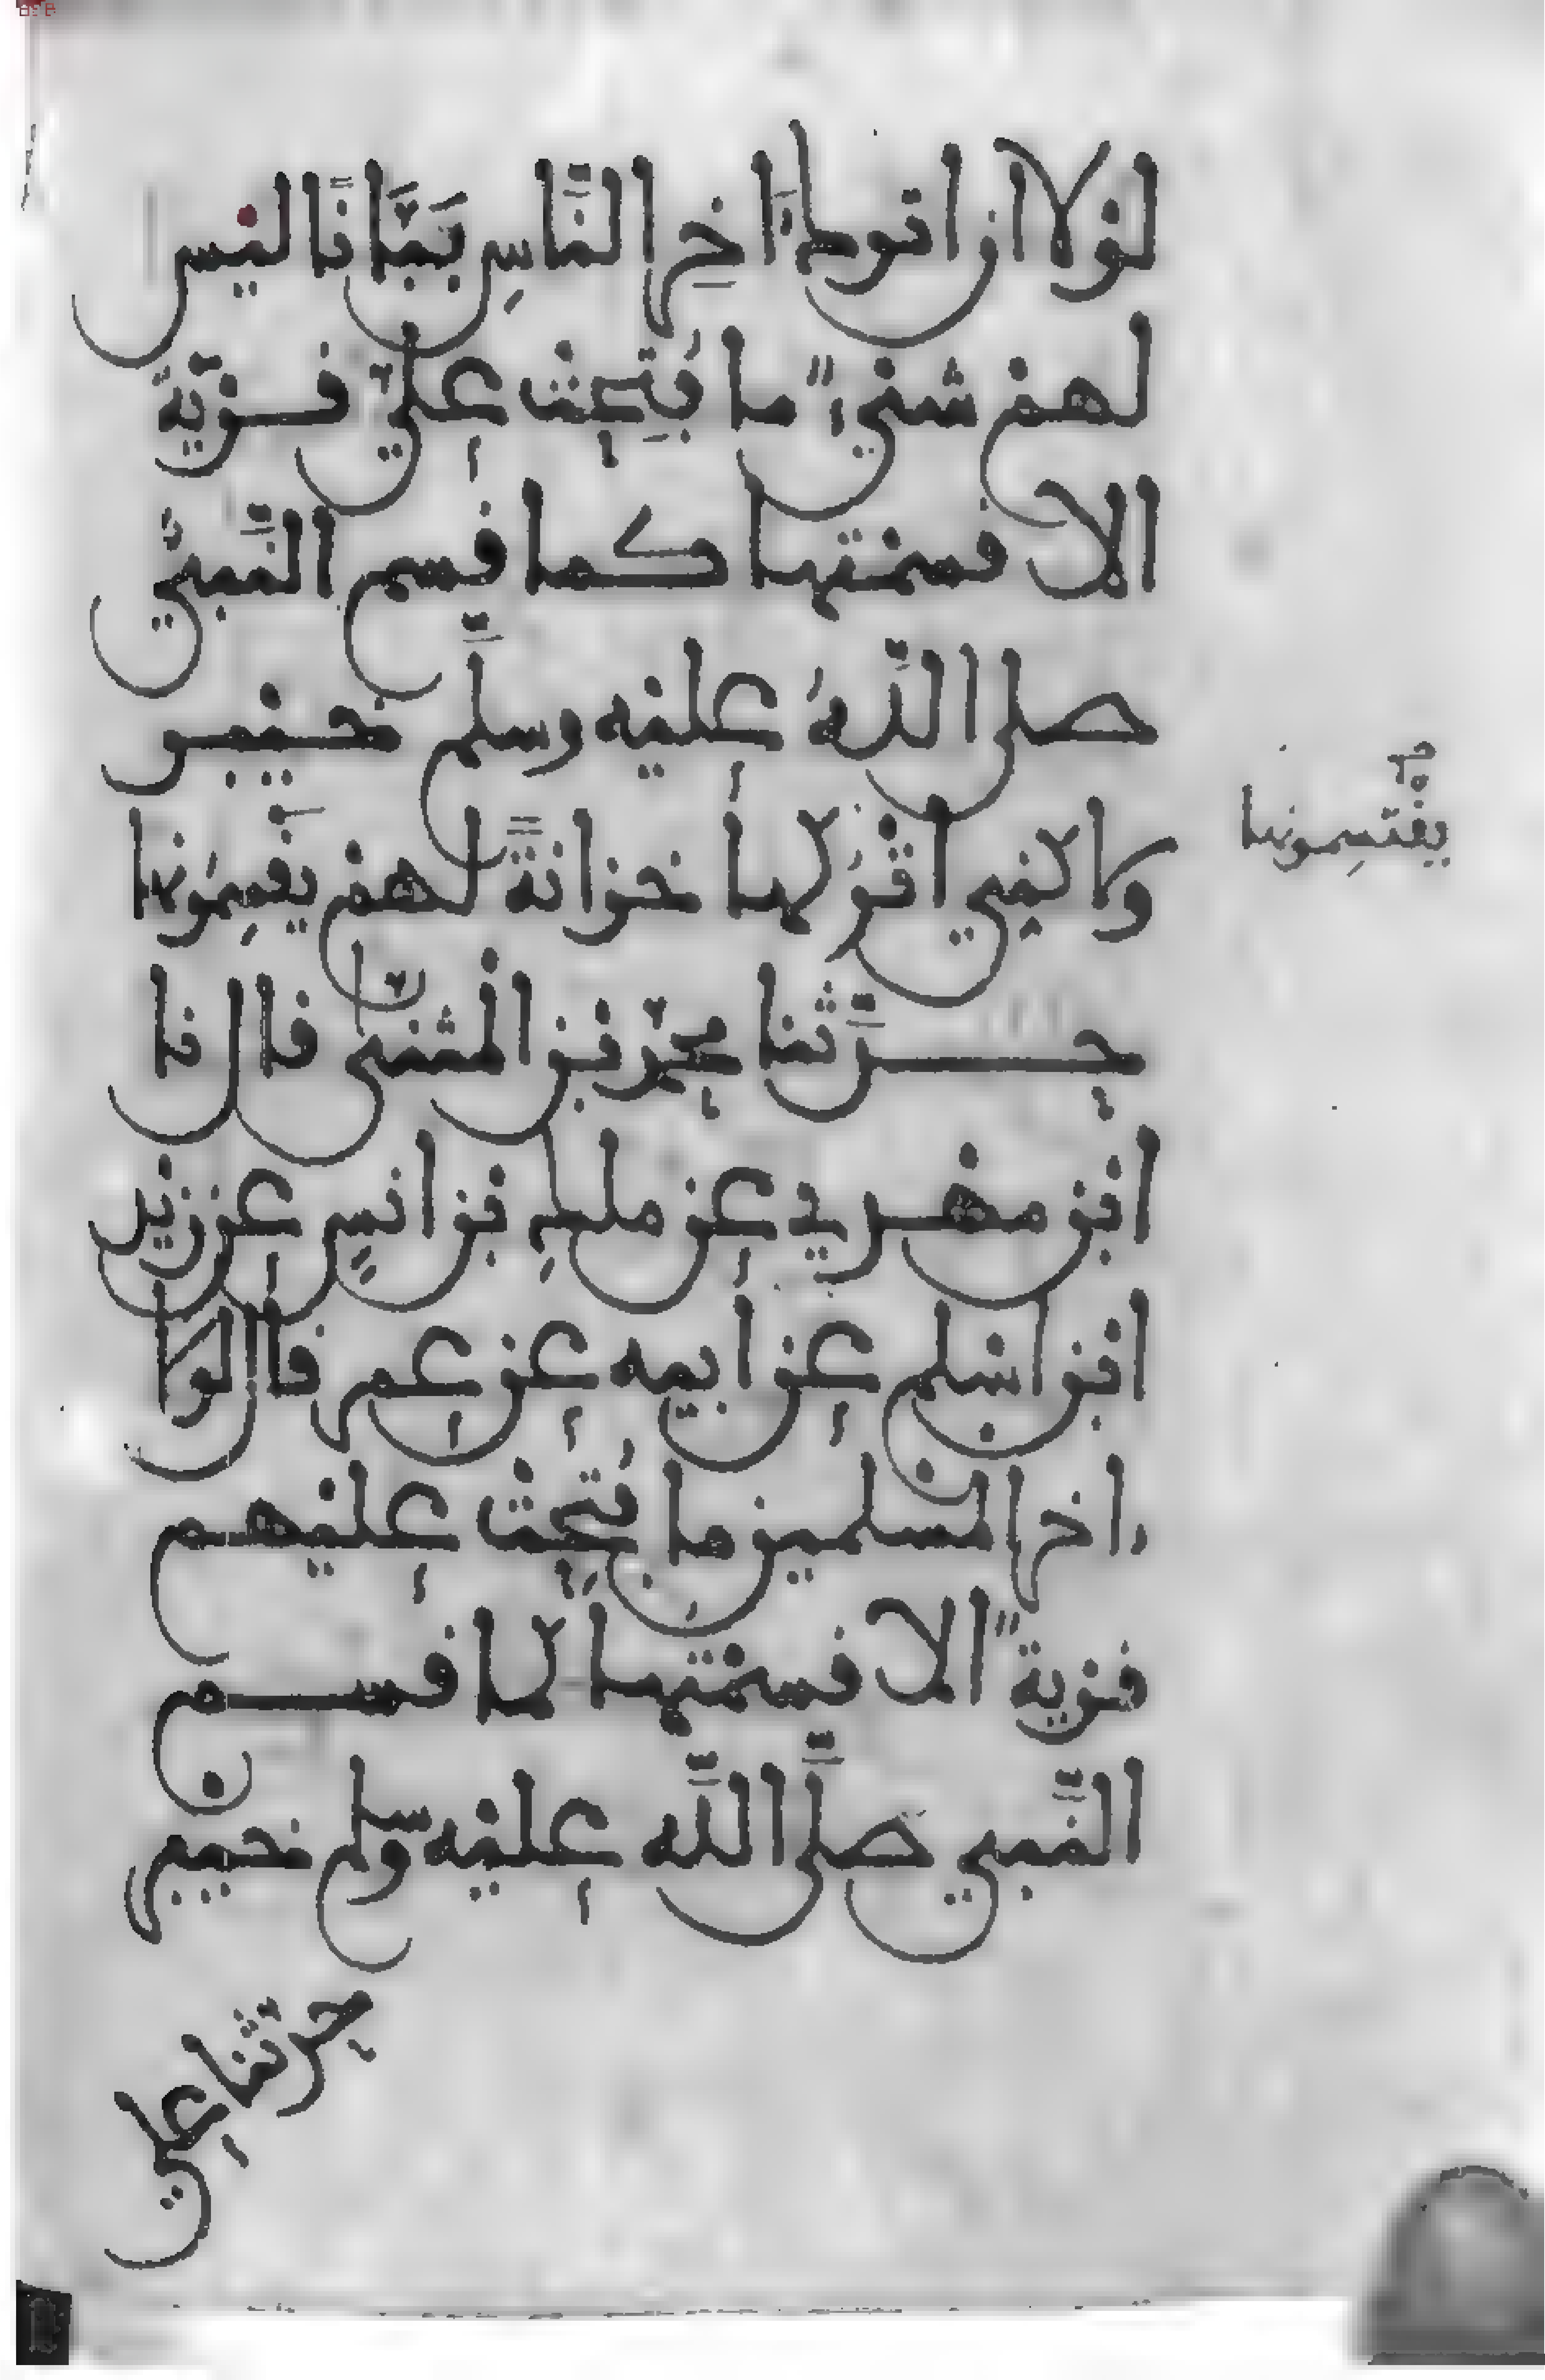 لَوْلا ان اتْرُكَ اٰخِرَ النَّاسِ بَبَّانًا لَيْسَ
لهمْ شَيْءٌ ما فُتِحَتْ عليَّ قَرْيَةٌ
الا قسمْتها كما قسم النَّبيُّ
صلى اللَّهُ عليْه وسلَّم خيْبر
ولاكنِّي اتْرُكها خزانةً لهمْ يقْسِمُونها
يقْتسِمونها
حدَّثنا محمَّد بن المثنَّى قال نا
ابْن مهْدي عن ملكِ بن انسٍ عن زيْد
ابْن اسْلم عن أبيه عن عمر قال لولا
ءاخر المسلمين ما فُتِحَتْ عليْهم
قرْيةٌ الا قسمْتها كما قسم
النَّبي صلَّى اللَّه عليْه وسلم خيبر
حدَّثنا علي